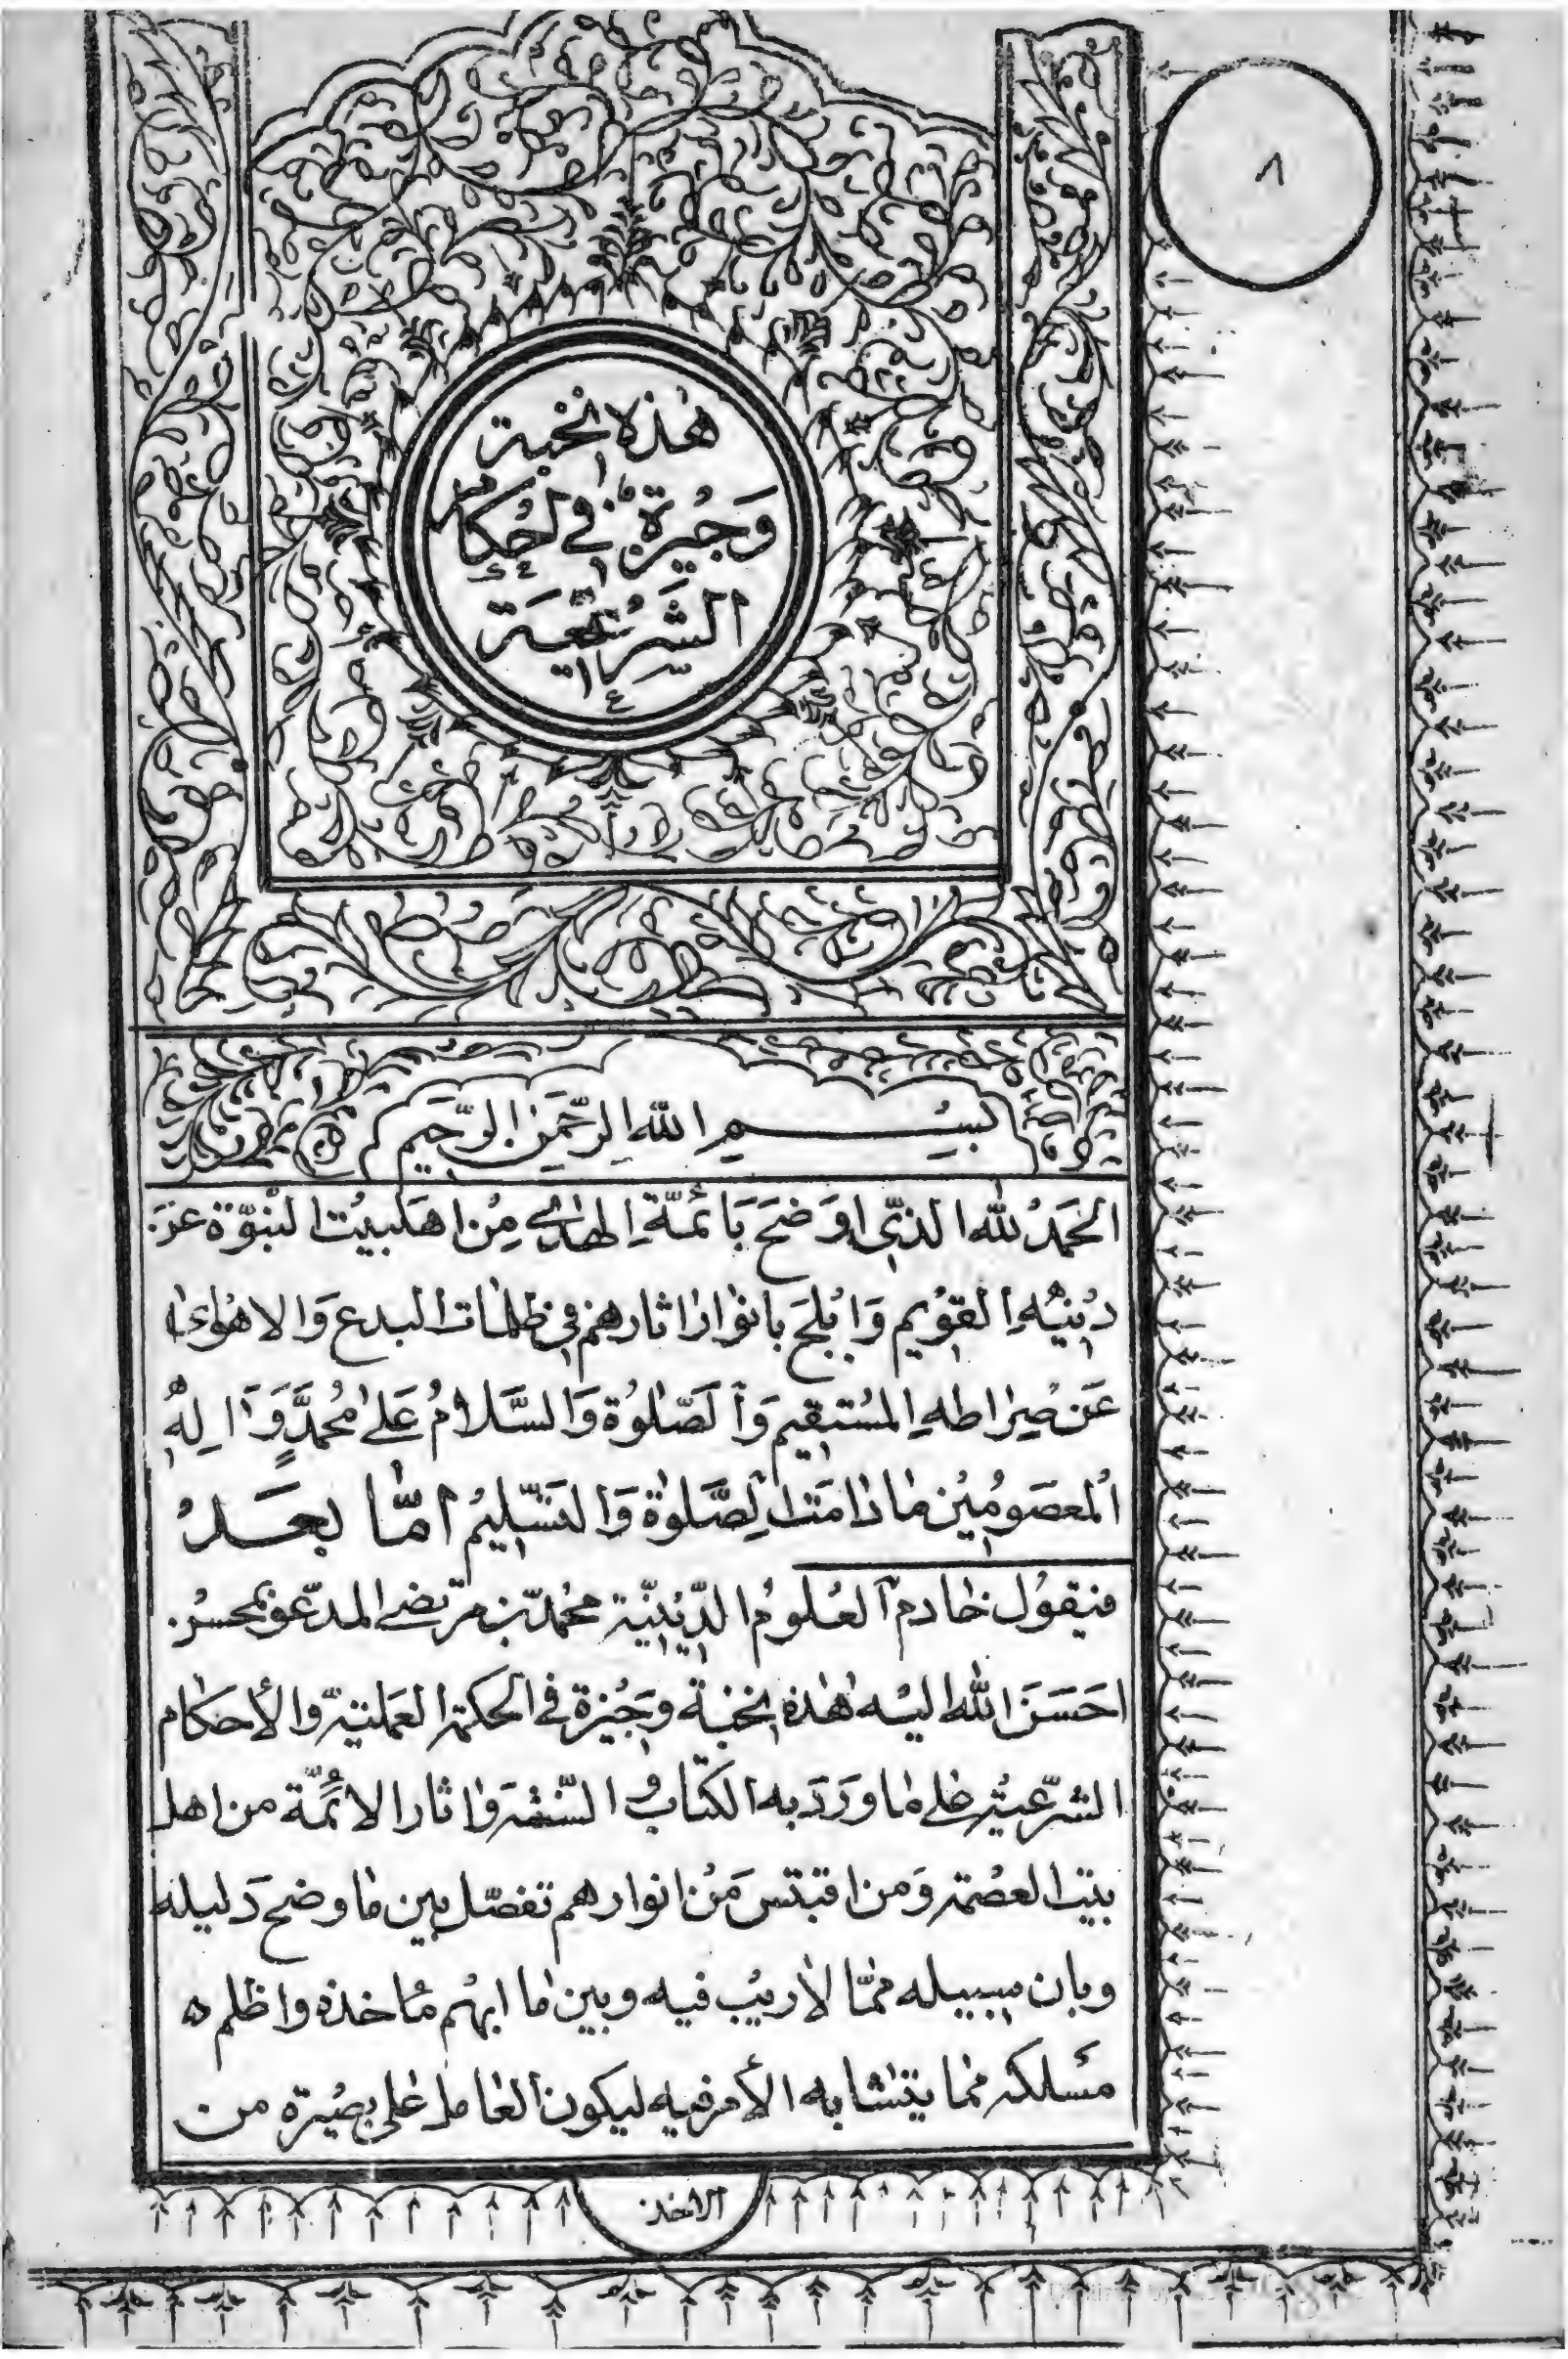 ٨
هٰذه نخبة
وَجيزة في احكام
الشَّريعَة
بسم الله الرَّحمن الرَّحيم
الحَمدُ لله الذي اوضَحَ بَائمَّةِ الهدى مِن اهلبيت النّبوّة عَن
دينِهِ القويم وَابلَج بانوار اثارهم في ظلمات البدع وَالاهواء
عَن صِراطهِ المُستقيم وَالصَّلوة وَالسَّلامُ عَلى محُمدٍ وَالِهِ
المعصومين ما دامَت الصَّلوة وَالتسليم امّا بعدُ
فيقول خادم العلوم الدّينيّة محمّد بن مرتضى المدعو بمحسن
احسَنَ الله اليه هٰذه نخبة وجيزة في الحكمة العَمليّة والأحكام
الشرعيّة على ما وَرَدَ به الكتاب و السّنة وَاثار الائمّة من اهل
بيت العصمة وَمن اقتبس مَن انوارهم تفصّل بين ما وضح دَليله
وبان سبيله ممّا لا ريب فيه وبين ما ابهم مأخذه واظلم
مَسلكه مما يتشابه الأمر فيه ليكون العامل على بصيرة من
الاخذ